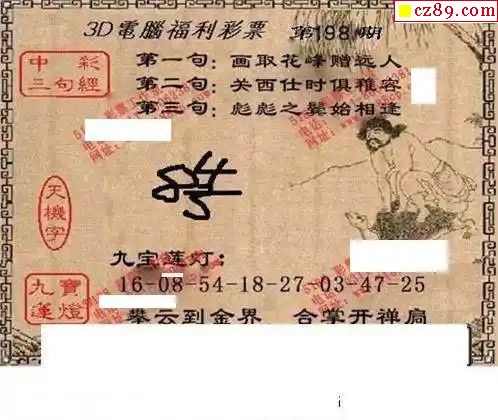 cz89.com
3D電腦福利彩票 第198期
中彩
三句經
第一句：画取花峰赠远人
第二句：关西仕时俱稚容
第三句：彪彪之髮始相逢
天機字
九宝莲灯：
九寶蓮燈
16-08-54-18-27-03-47-25
攀云到金界 合掌开禅局
i